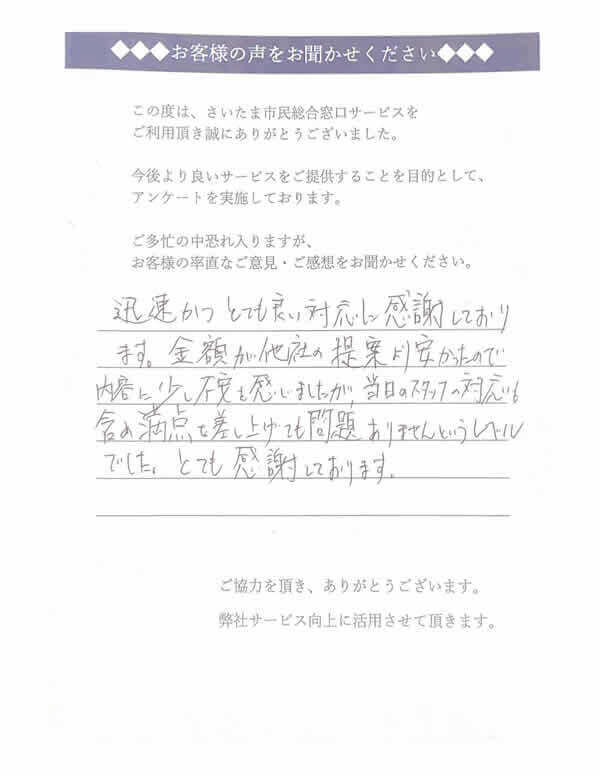 ◆◆◆お客様の声をお聞かせください◆◆◆
この度は、さいたま市民総合窓口サービスを
ご利用頂き誠にありがとうございました。
今後より良いサービスをご提供することを目的として、
アンケートを実施しております。
ご多忙の中恐れ入りますが、
お客様の率直なご意見・ご感想をお聞かせください。
迅速かつとても良い対応に感謝しており
ます。金額が他社の提案より安かったので
内容に少し不安も感じましたが、当日のスタッフの対応も
含め満点を差し上げても問題ありませんというレベル
でした。とても感謝しております。
ご協力を頂き、ありがとうございます。
弊社サービス向上に活用させて頂きます。